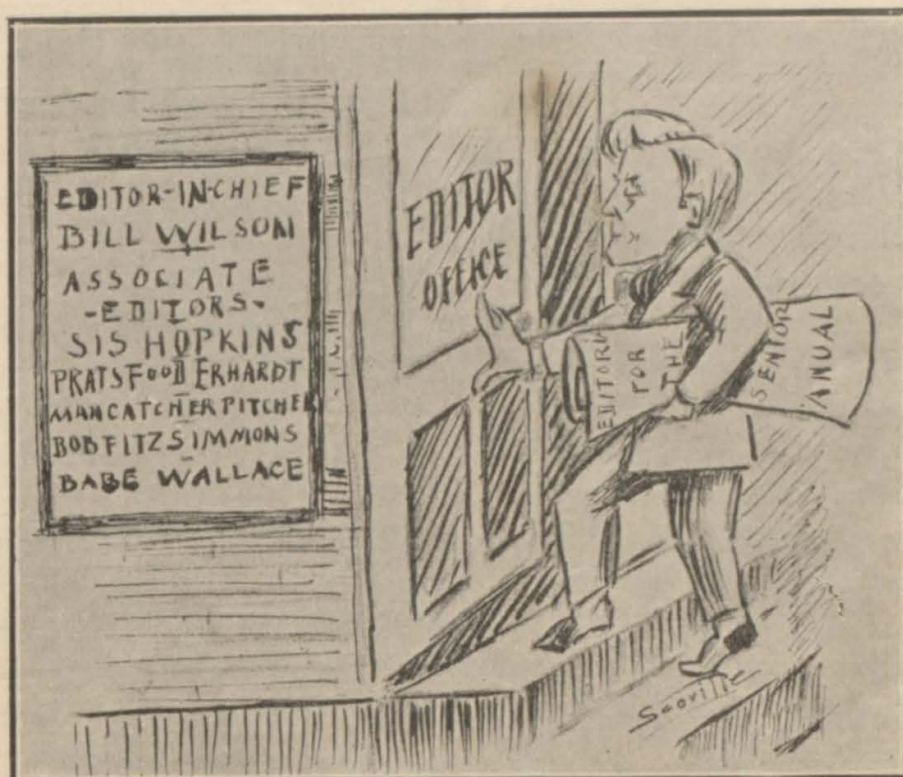 EDITOR-IN-CHIEF
BILL WILSON
ASSOCIATE
-EDITORS-
SIS HOPKINS
PRATSFOOD ERHARDT
MANCATCHER PITCHER
BOB FITZSIMMONS
BABE WALLACE
EDITOR
OFFICE
EDITORI
FOR
THE
SENIOR
ANUAL
Scoville